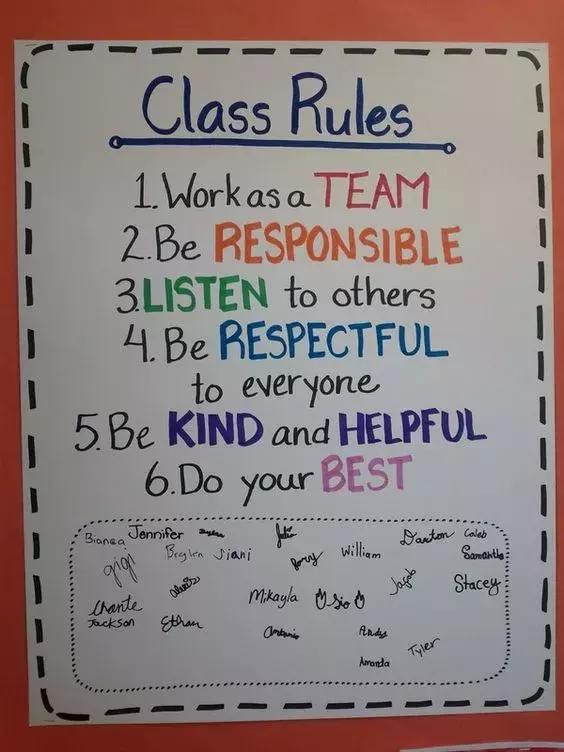 Class Rules
1. Work as a TEAM
2. Be RESPONSIBLE
3. LISTEN to others
4. Be RESPECTFUL
to everyone
5. Be KIND and HELPFUL
6. Do your BEST
Bianca Jennifer Julia Daxton Caleb
gigi Braylin Siani William Samantha
Mikayla Sio Jacob Stacey
Chante
Jackson Ethan Antonio Andy
Amanda Tyler